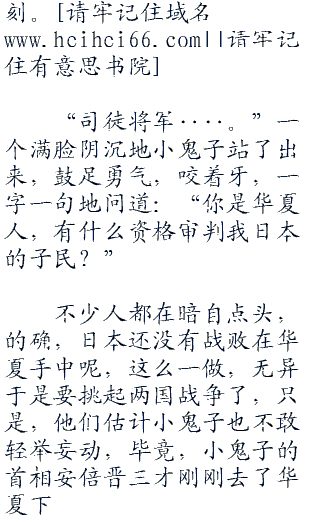 刻。[请牢记住域名
www.hcihci66.com||语牢记
住有意思书院]
“司徒将军····。”一
个满脸阴沉地小鬼子站了出
来，鼓足勇气，咬着牙，一
字一句地问道：“你是华夏
人，有什么资格审判我日本
的子民？”
不少人都在暗自点头，
的确，日本还没有战败在华
夏手中呢，这么一做，无异
于是要挑起两国战争了，只
是，他们估计小鬼子也不敢
轻举妄动，毕竟，小鬼子的
首相安倍晋三才刚刚去了华
夏下